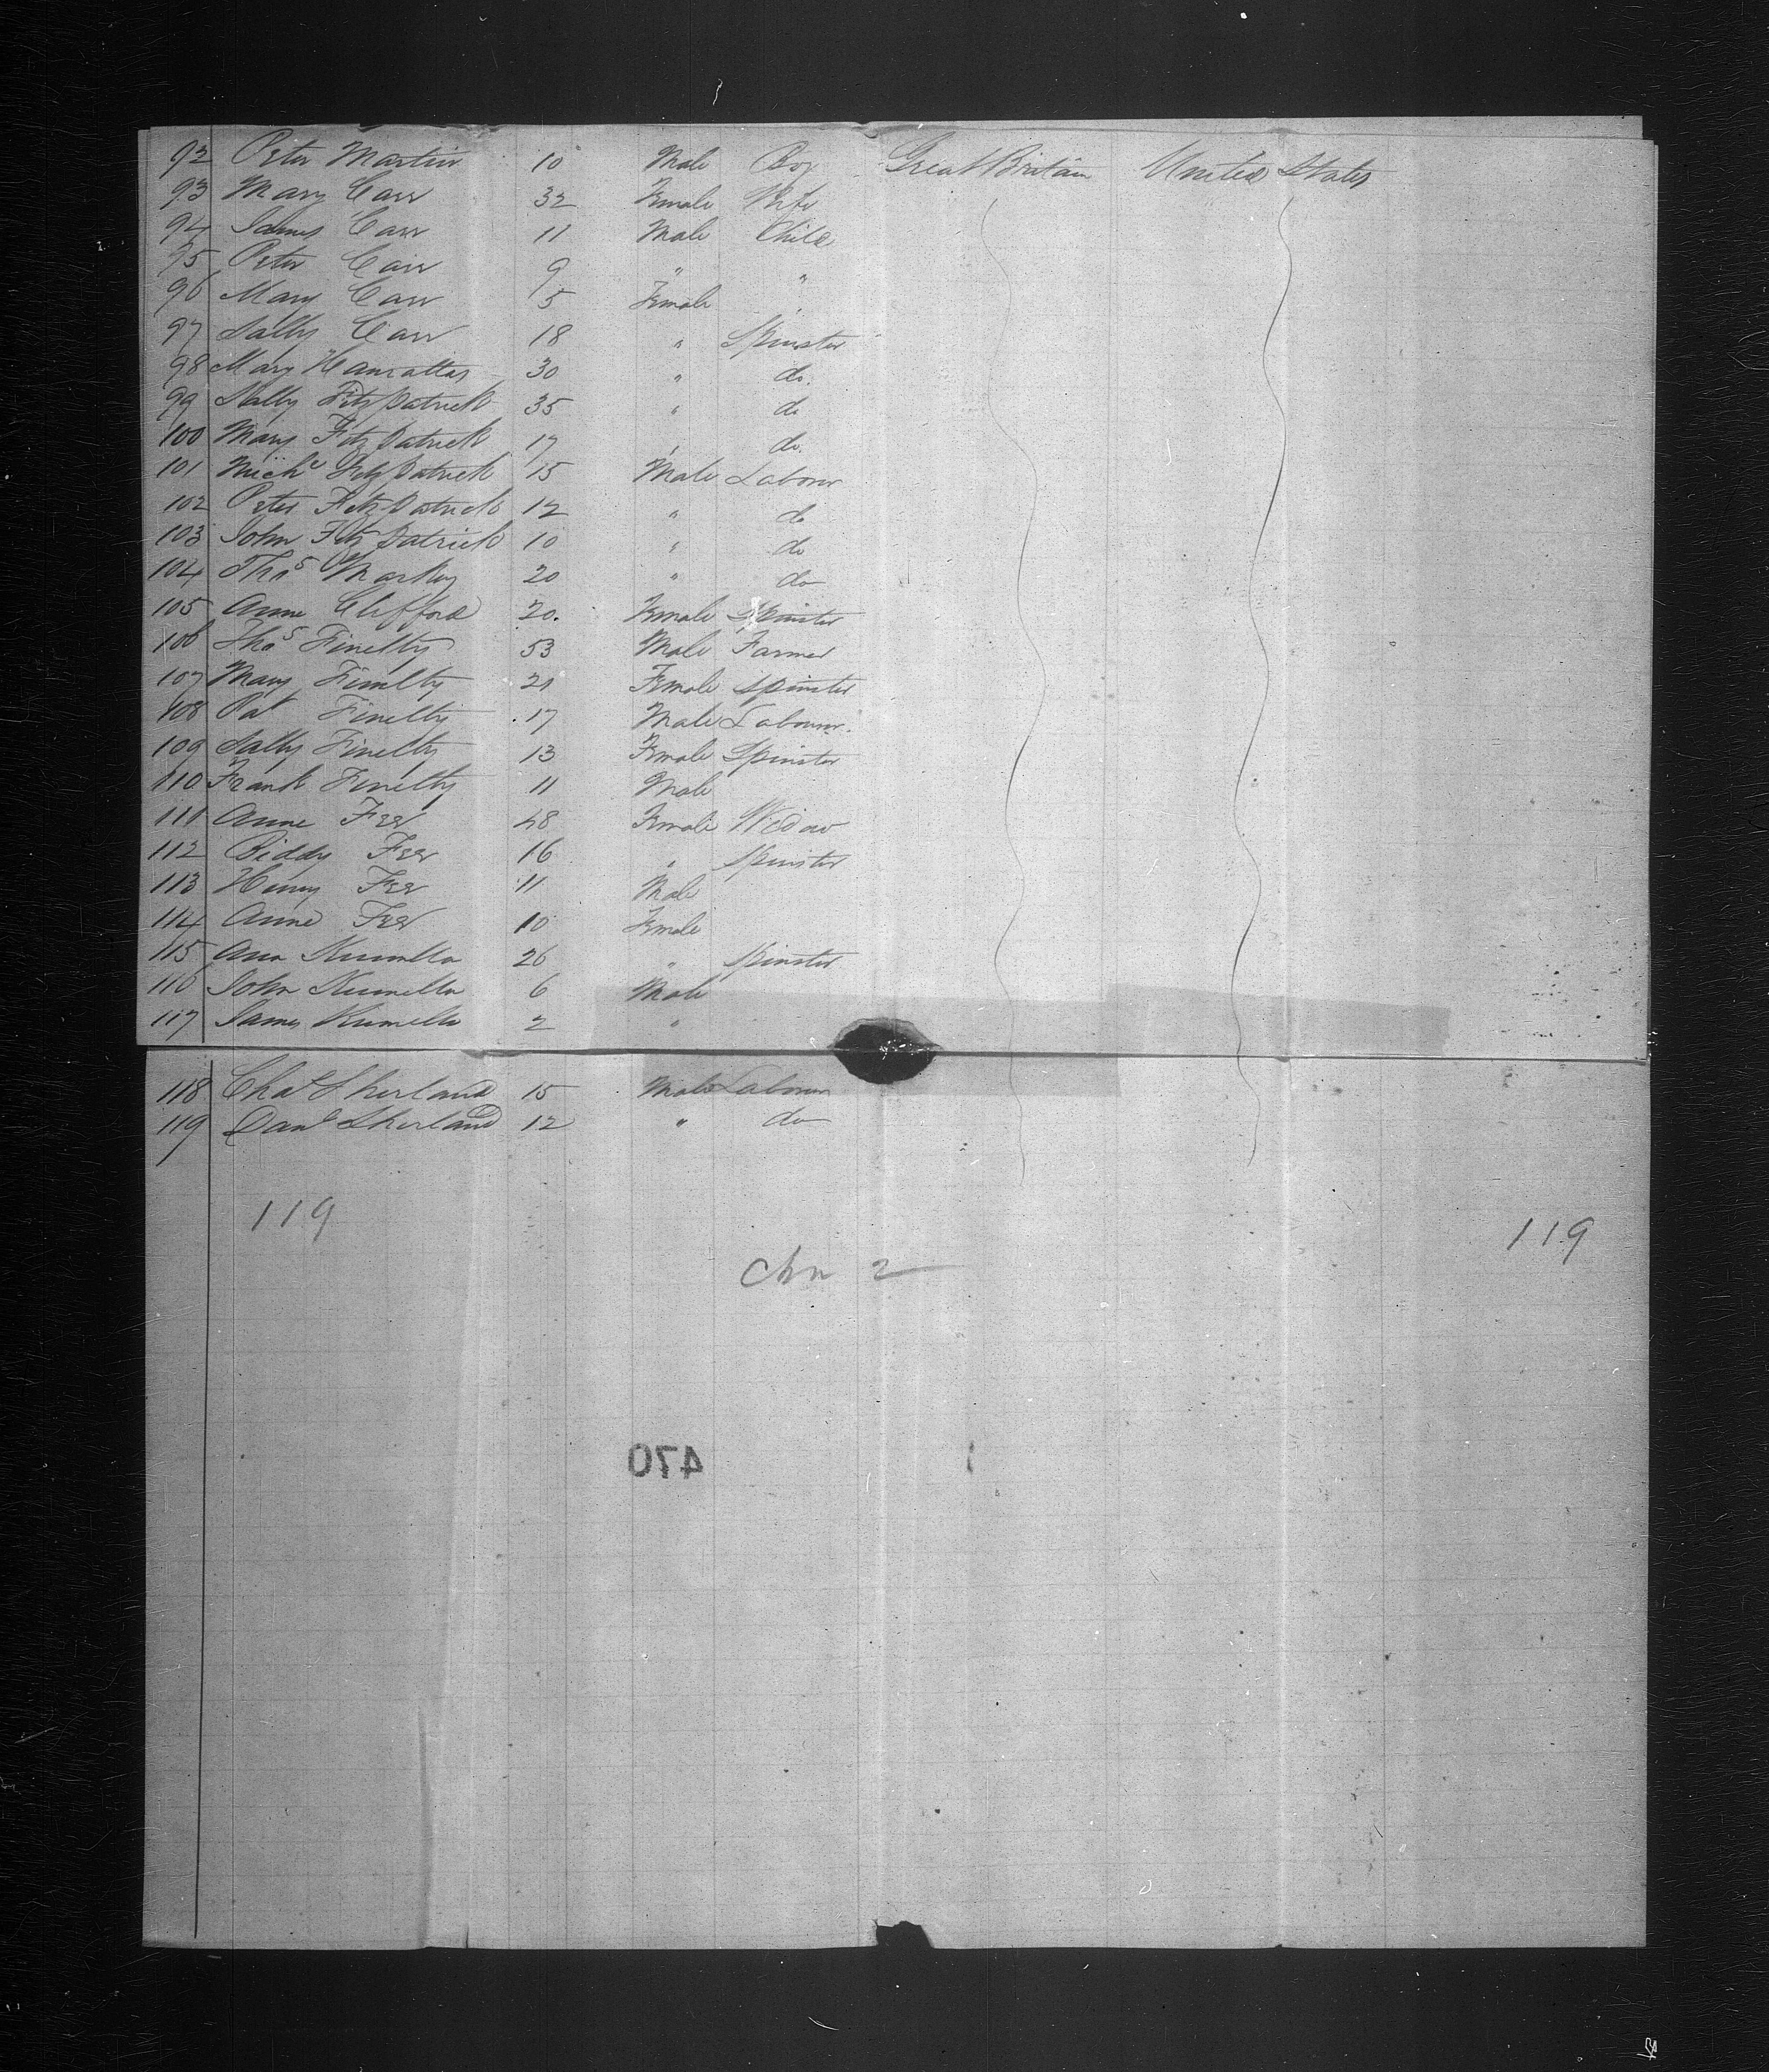 92 Peter Martin 10 Male Boy Great Britain United States
93 Mary Carr 32 Female Wife
94 James Carr 11 Male Child
95 Peter Carr 9 " "
96 Mary Carr 5 Female "
97 Sally Carr 18 " Spinster
98 Mary Hanrattay 30 " do.
99 Sally Fitzpatrick 35 " do
100 Mary Fitzpatrick 17 " do.
101 Michl Fitzpatrick 15 Male Laborer
102 Peter Fitzpatrick 12 " do
103 John Fitzpatrick 10 " do
104 Thos Markey 20 " do
105 Anne Clifford 20. Female Spinster
106 Thos Finelty 53 Male Farmer
107 Mary Finelty 21 Female Spinster
108 Pat Finelty 17 Male Labourer
109 Sally Finelty 13 Female Spinster
110 Frank Finelty 11 Male
111 Anne Fee 48 Female Widow
112 Biddy Fee 16 " Spinster
113 Henry Fee 11 Male
114 Anne Fee 10 Female
115 Ann 26 " Spinster
116 John 6 Male
117 James 2 "
118 Chas Sherland 15 Male Laborer
119 Danl Sherland 12 " do
119
119
Chn 2
470